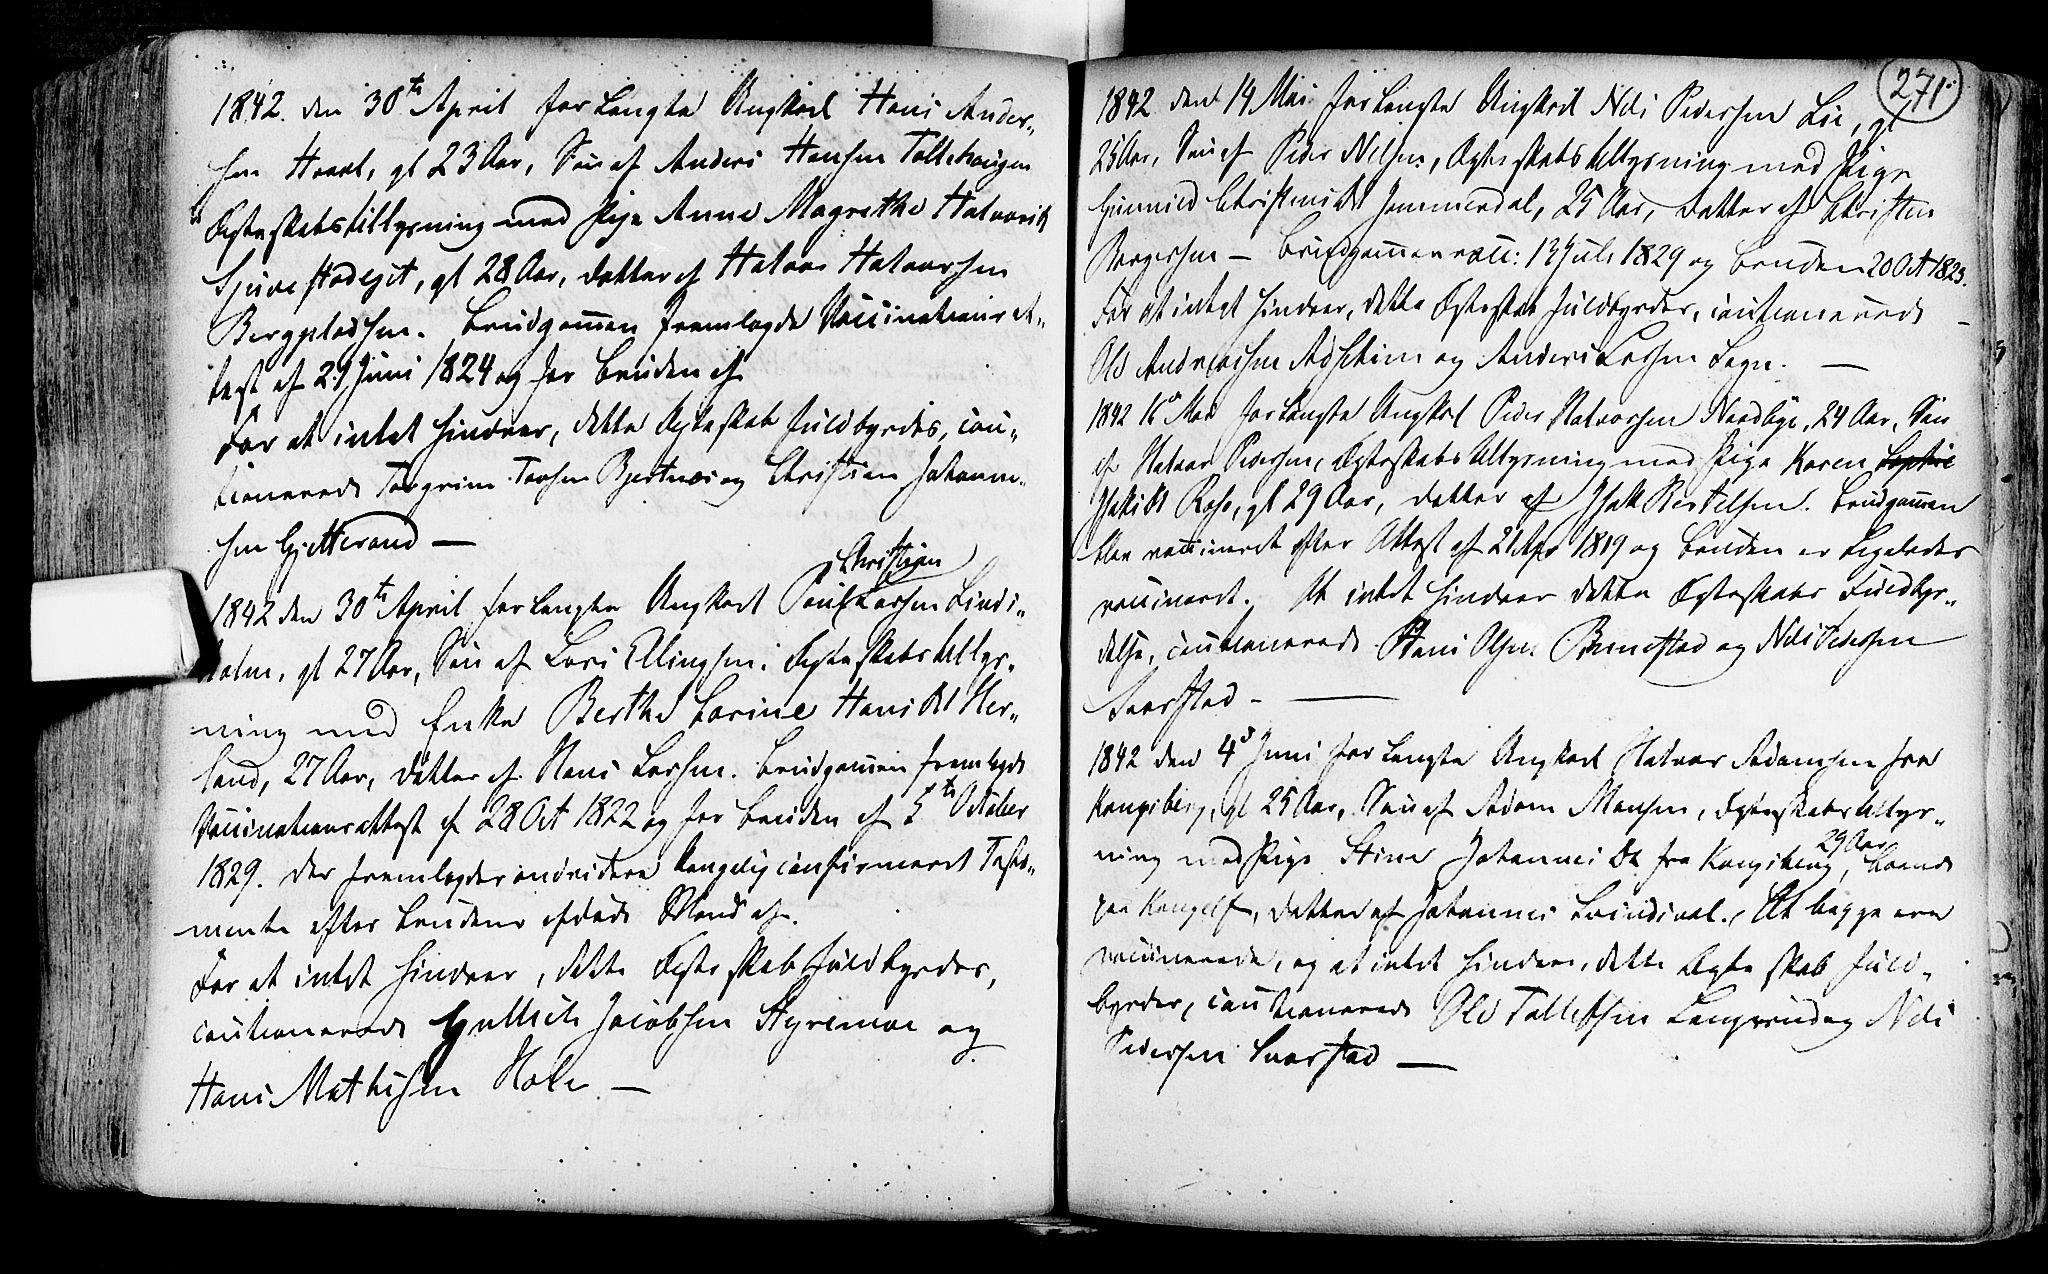 1842. den 30te April forlangte Ungkarl Hans Ander-
sen Hvaal, gl 23 Aar, Søn af Anders Hansen Tollehaugen
Ægteskabstillysning med Pige Anne Magrethe Halvorsd
gl 28 Aar, datter af Halvor Halvorsen
Bergpladsen. Brudgommen fremlagde Vaccinationsat-
test af 29 Juni 1824 og for Bruden af
For at intet hindrer, dette Ægteskab fuldbyrdes, cau-
tionerede Torgrim Torsen Bjertnæs og Christian Johanne-
sen Gjetterand —
Christian
1842 den 30te April forlangte Ungkarl Poul Larsen Linds-
holm, gl 27 Aar, Søn af Lars Ellingsen, Ægteskabstillys-
ning med Enke Berthe Karine Hans Dt Her-
land, 27 Aar, datter af Hans Larsen. Brudgommen fremlagde
Vaccinationsattest af 28 Oct 1822 og for Bruden af 5te October
1829. Der fremlagdes endvidere kongelig confirmeret Testa-
mente efter Brudens afdøde Mand af.
For at intet hindrer, dette Ægteskab fuldbyrdes,
cautionerede Gullich Jacobsen Styremoe og
Hans Mathisen Hole —
271.
1842 den 14 Mai forlangte Ungkarl Nils Pedersen Lie, gl
25 Aar, Søn af Peder Nilsen, Ægteskabstillysning med Pige
Gunnild Christensdt Jammerdal, 25 Aar, datter af Christen
Borgersen — Brudgommen vacc: 13 Juli 1829 og Bruden 20 Oct 1823.
For at intet hindrer, dette Ægteskab fuldbyrdes, cautionerede —
Ole Andreassen og Anders Larsen —
1842 16de Mai forlangte Ungkarl Peder Halvorsen Nordbye, 24 Aar, Søn
af Halvor Pedersen, Ægteskabstillysning med Pige Karen Sophie
Isaksdt gl 29 Aar, datter af Isak Bertelsen. Brudgommen
blev vaccineret efter Attest af 21 Apr 1819 og Bruden er ligeledes
vaccineret. At intet hindrer dette Ægteskabs Fuldbyr-
delse, cautionerede Hans Olsen Brunestad og Nils Pedersen
Svarstad —
1842 den 4de Juni forlangte Ungkarl Halvor Adamsen fra
Kongsberg, gl 25 Aar, Søn af Adam Monsen, Ægteskabstillys-
29 Aar
ning med Pige Stine Johannes Dt fra Kongsberg, boende
paa datter af Johannes At begge ere
vaccinerede, og at intet hindrer, dette Ægteskab fuld-
byrdes, cautionerede Ole Tollefsen Langerud og Nils
Pedersen Svarstad —